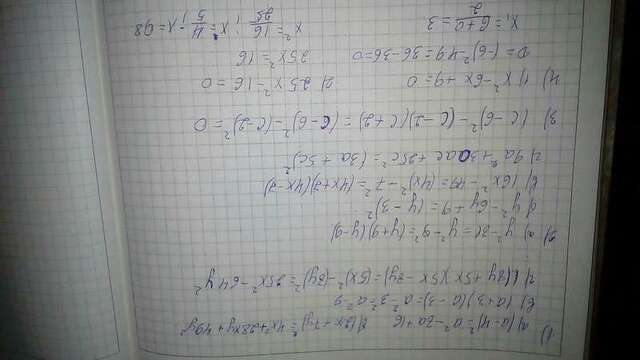 1) а) (a-4)²=a²-8a+16 б) (2x+7y)²=4x²+28xy+49y²
в) (a+3)(a-3)=a²-3²=a²-9
г) (8y+5x)(5x-8y)=(5x)²-(8y)²=25x²-64y²
2) а) y²-81=y²-9²=(y+9)(y-9)
y²-6y+9=(y-3)²
в) 16x²-49=(4x)²-7²=(4x+7)(4x-7)
г) 9a²+30ac+25c²=(3a+5c)²
3) (c-6)²-(c-2)(c+2)=(c-6)²-(c-2)²=0
4) 1) x²-6x+9=0 2) 25x²-16=0
D=(-6)²-4·9=36-36=0 25x²=16
x₁=6+0/2=3 x²=16/25; x=4/5; x=0,8